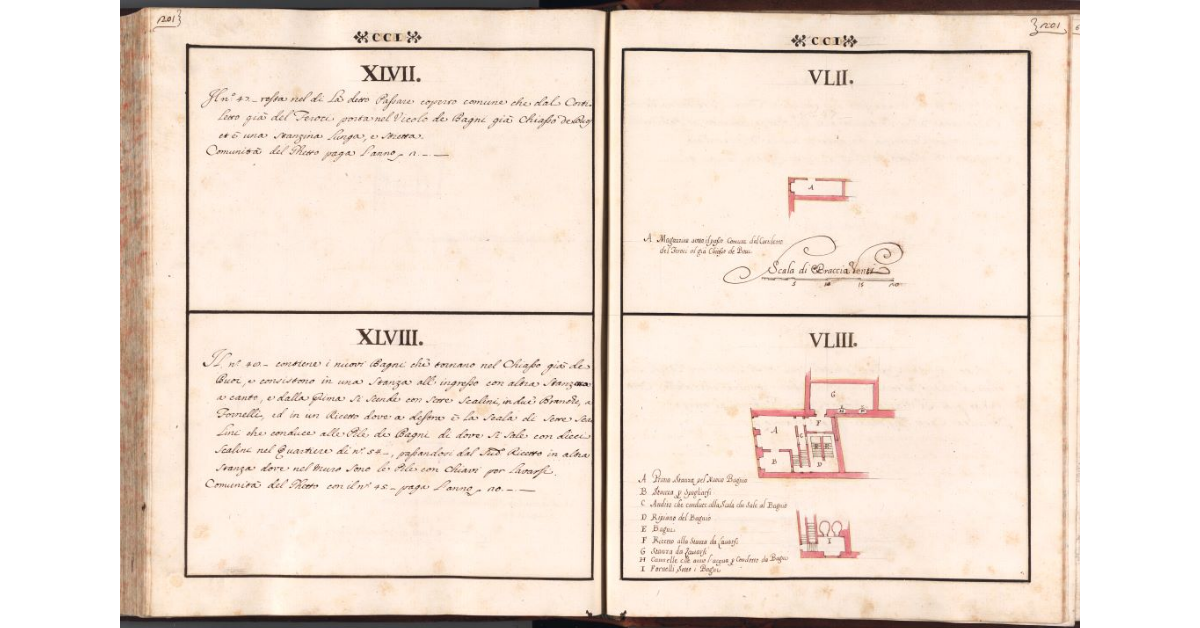 1201
CCI
XLVII.
Il n.º 47 resta nel di Là detto Passare coperto comune che dal Corti-
letto già del Feroci porta nel Vicolo de Bagni già Chiasso de Buoi
et è una stanzina lunga, e stretta.
Comunità del Ghetto paga l'anno
XLVIII.
contiene i nuovi Bagni che tornano nel Chiasso già de
Buoi, e consistono in una stanza all'ingresso con altra stanzina
a canto, e dalla prima si scende con sette scalini, in due Branche, a
Fornelli, ed in un Ricetto dove a destra è la Scala di sette sca
lini che conduce alle Pile de Bagni di dove si sale con dieci
scalini nel Quartiere di n.º passandosi dal Ricetto in altra
stanza dove nel muro sono le Pile con Chiavi per lavarsi.
Comunità del Ghetto con il n.º paga l'anno
1201
CCI
VLII.
A
A Magazzino sotto il passo comune del Cortile
del Feroci al già Chiasso de Buoi
Scala di Braccia Venti
5 10 15 20
VLIII.
G
H H
A F
C E
B D
A Prima Stanza del Nuovo Bagno
B Stanza p Spogliarsi
C Andito che conduce alla Scala che Sale al Bagno
D Ripiano del Bagno
E Bagni
F Ricetto alla Stanza da Lavarsi
G Stanza da Lavarsi
H Cannelle che anno l'acqua
I Fornelli Sotto i Bagni
I